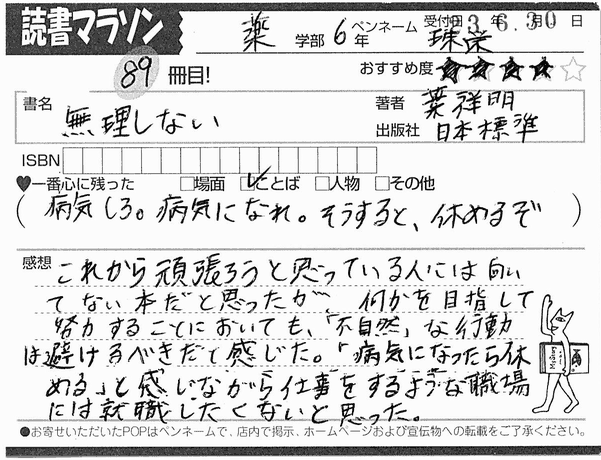 読書マラソン
薬 学部 6年 ペンネーム 珠栄 受付日 23年6月30日
89 冊目!
おすすめ度 ★★★★☆
書名 無理しない
著者 葉祥明
出版社 日本標準
ISBN
♥一番心に残った □場面 ☑ことば □人物 □その他
(病気しろ。病気になれ。そうすると、休めるぞ)
感想 これから頑張ろうと思っている人には向い
てない本だと思ったが、何かを目指して
努力することにおいても、「不自然」な行動
は避けるべきだと感じた。「病気になったら休
める」と感じながら仕事をするような職場
には就職したくないと思った。
●お寄せいただいたPOPはペンネームで、店内で掲示、ホームページおよび宣伝物への転載をご了承ください。